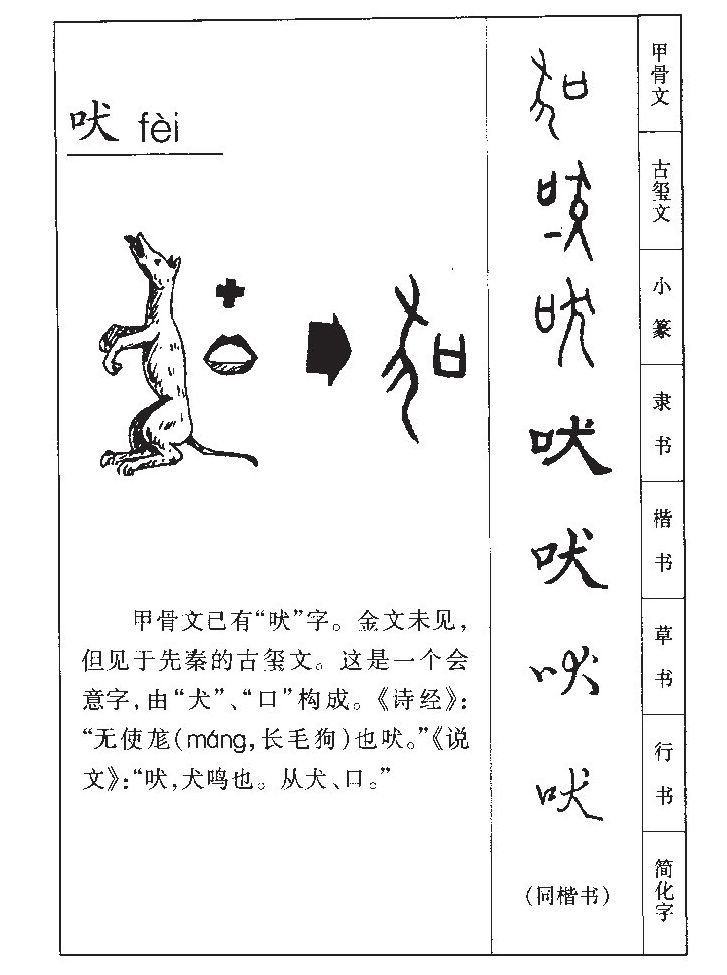 吠 fèi
甲骨文已有“吠”字。金文未见，
但见于先秦的古玺文。这是一个会
意字，由“犬”、“口”构成。《诗经》：
“无使尨（máng，长毛狗）也吠。”《说
文》：“吠，犬鸣也。从犬、口。”
甲骨文
古玺文
小篆
吠
隶书
吠
楷书
吠
草书
吠
行书
（同楷书）
简化字